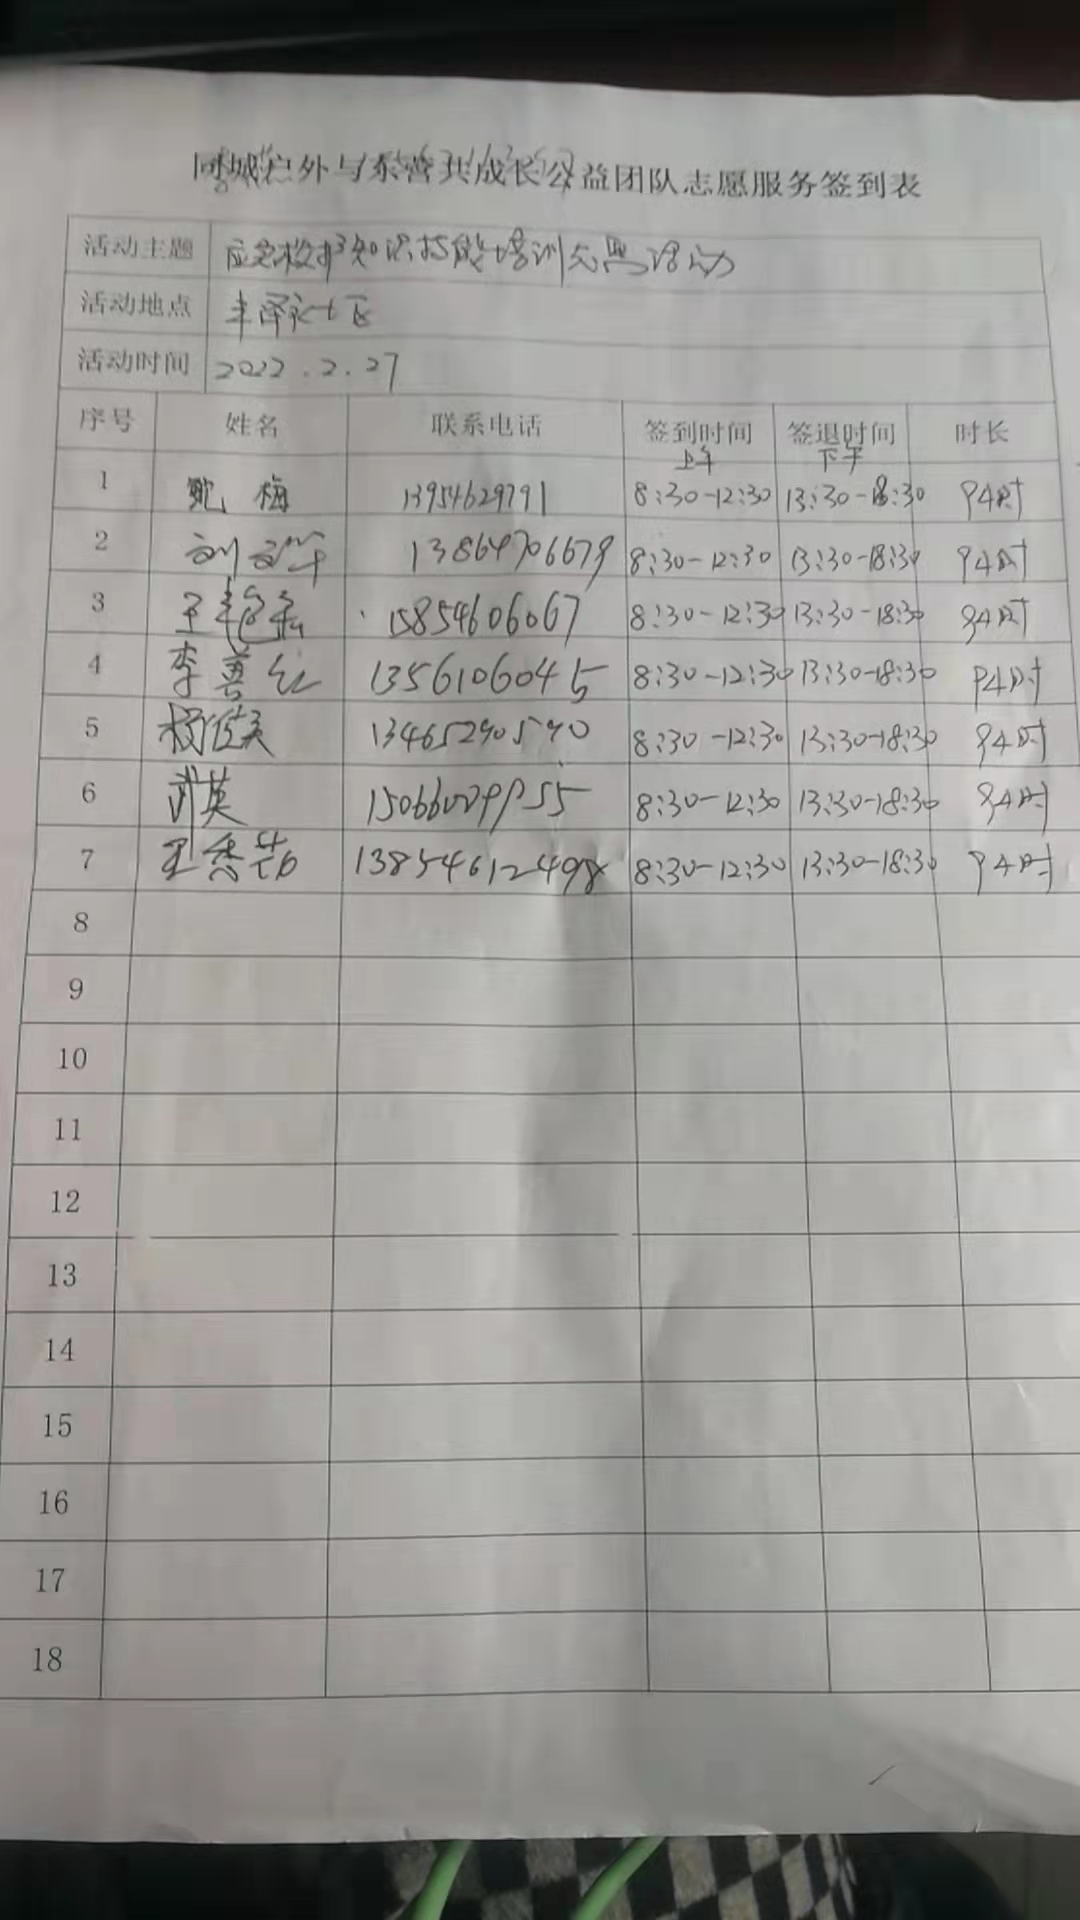 同城户外与东营共成长公益团队志愿服务签到表
活动主题 应急救护知识技能培训志愿活动
活动地点 丰泽社区
活动时间 2022.2.27
序号 姓名 联系电话 签到时间 签退时间 时长
上午 下午
1 鲍梅 13954629791 8:30-12:30 13:30-18:30 9小时
2 刘文华 13864706679 8:30-12:30 13:30-18:30 9小时
3 王 15854606067 8:30-12:30 13:30-18:30 9小时
4 李善红 1356106045 8:30-12:30 13:30-18:30 9小时
5 杨俊美 13465290590 8:30-12:30 13:30-18:30 9小时
6 武英 8:30-12:30 13:30-18:30 9小时
7 王秀芬 13854612498 8:30-12:30 13:30-18:30 9小时
8
9
10
11
12
13
14
15
16
17
18